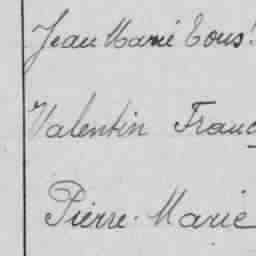 Jean Marie Tous
Valentin Franç
Pierre-Marie